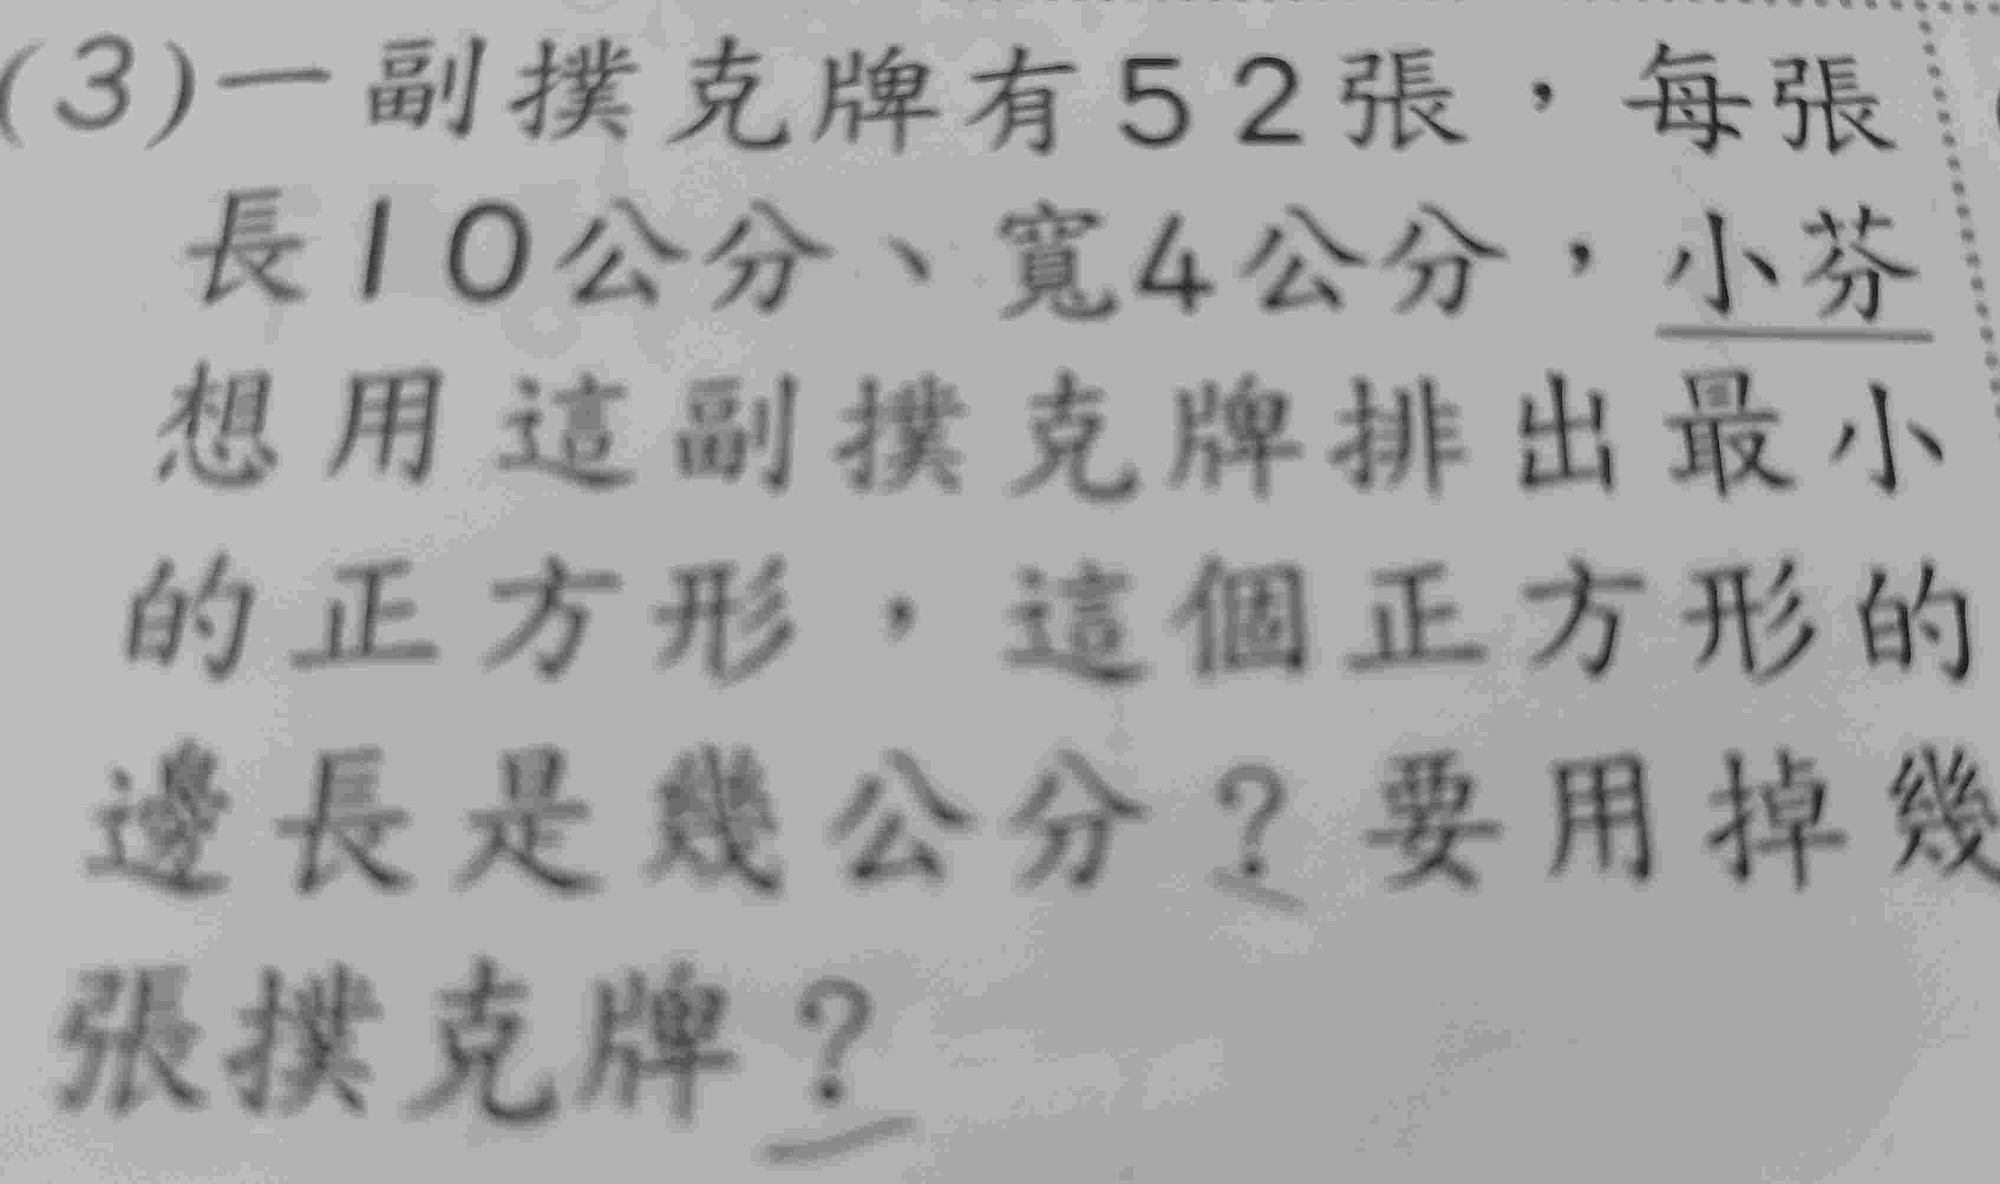 (3)一副撲克牌有52張，每張
長10公分、寬4公分，小芬
想用這副撲克牌排出最小
的正方形，這個正方形的
邊長是幾公分？要用掉幾
張撲克牌？